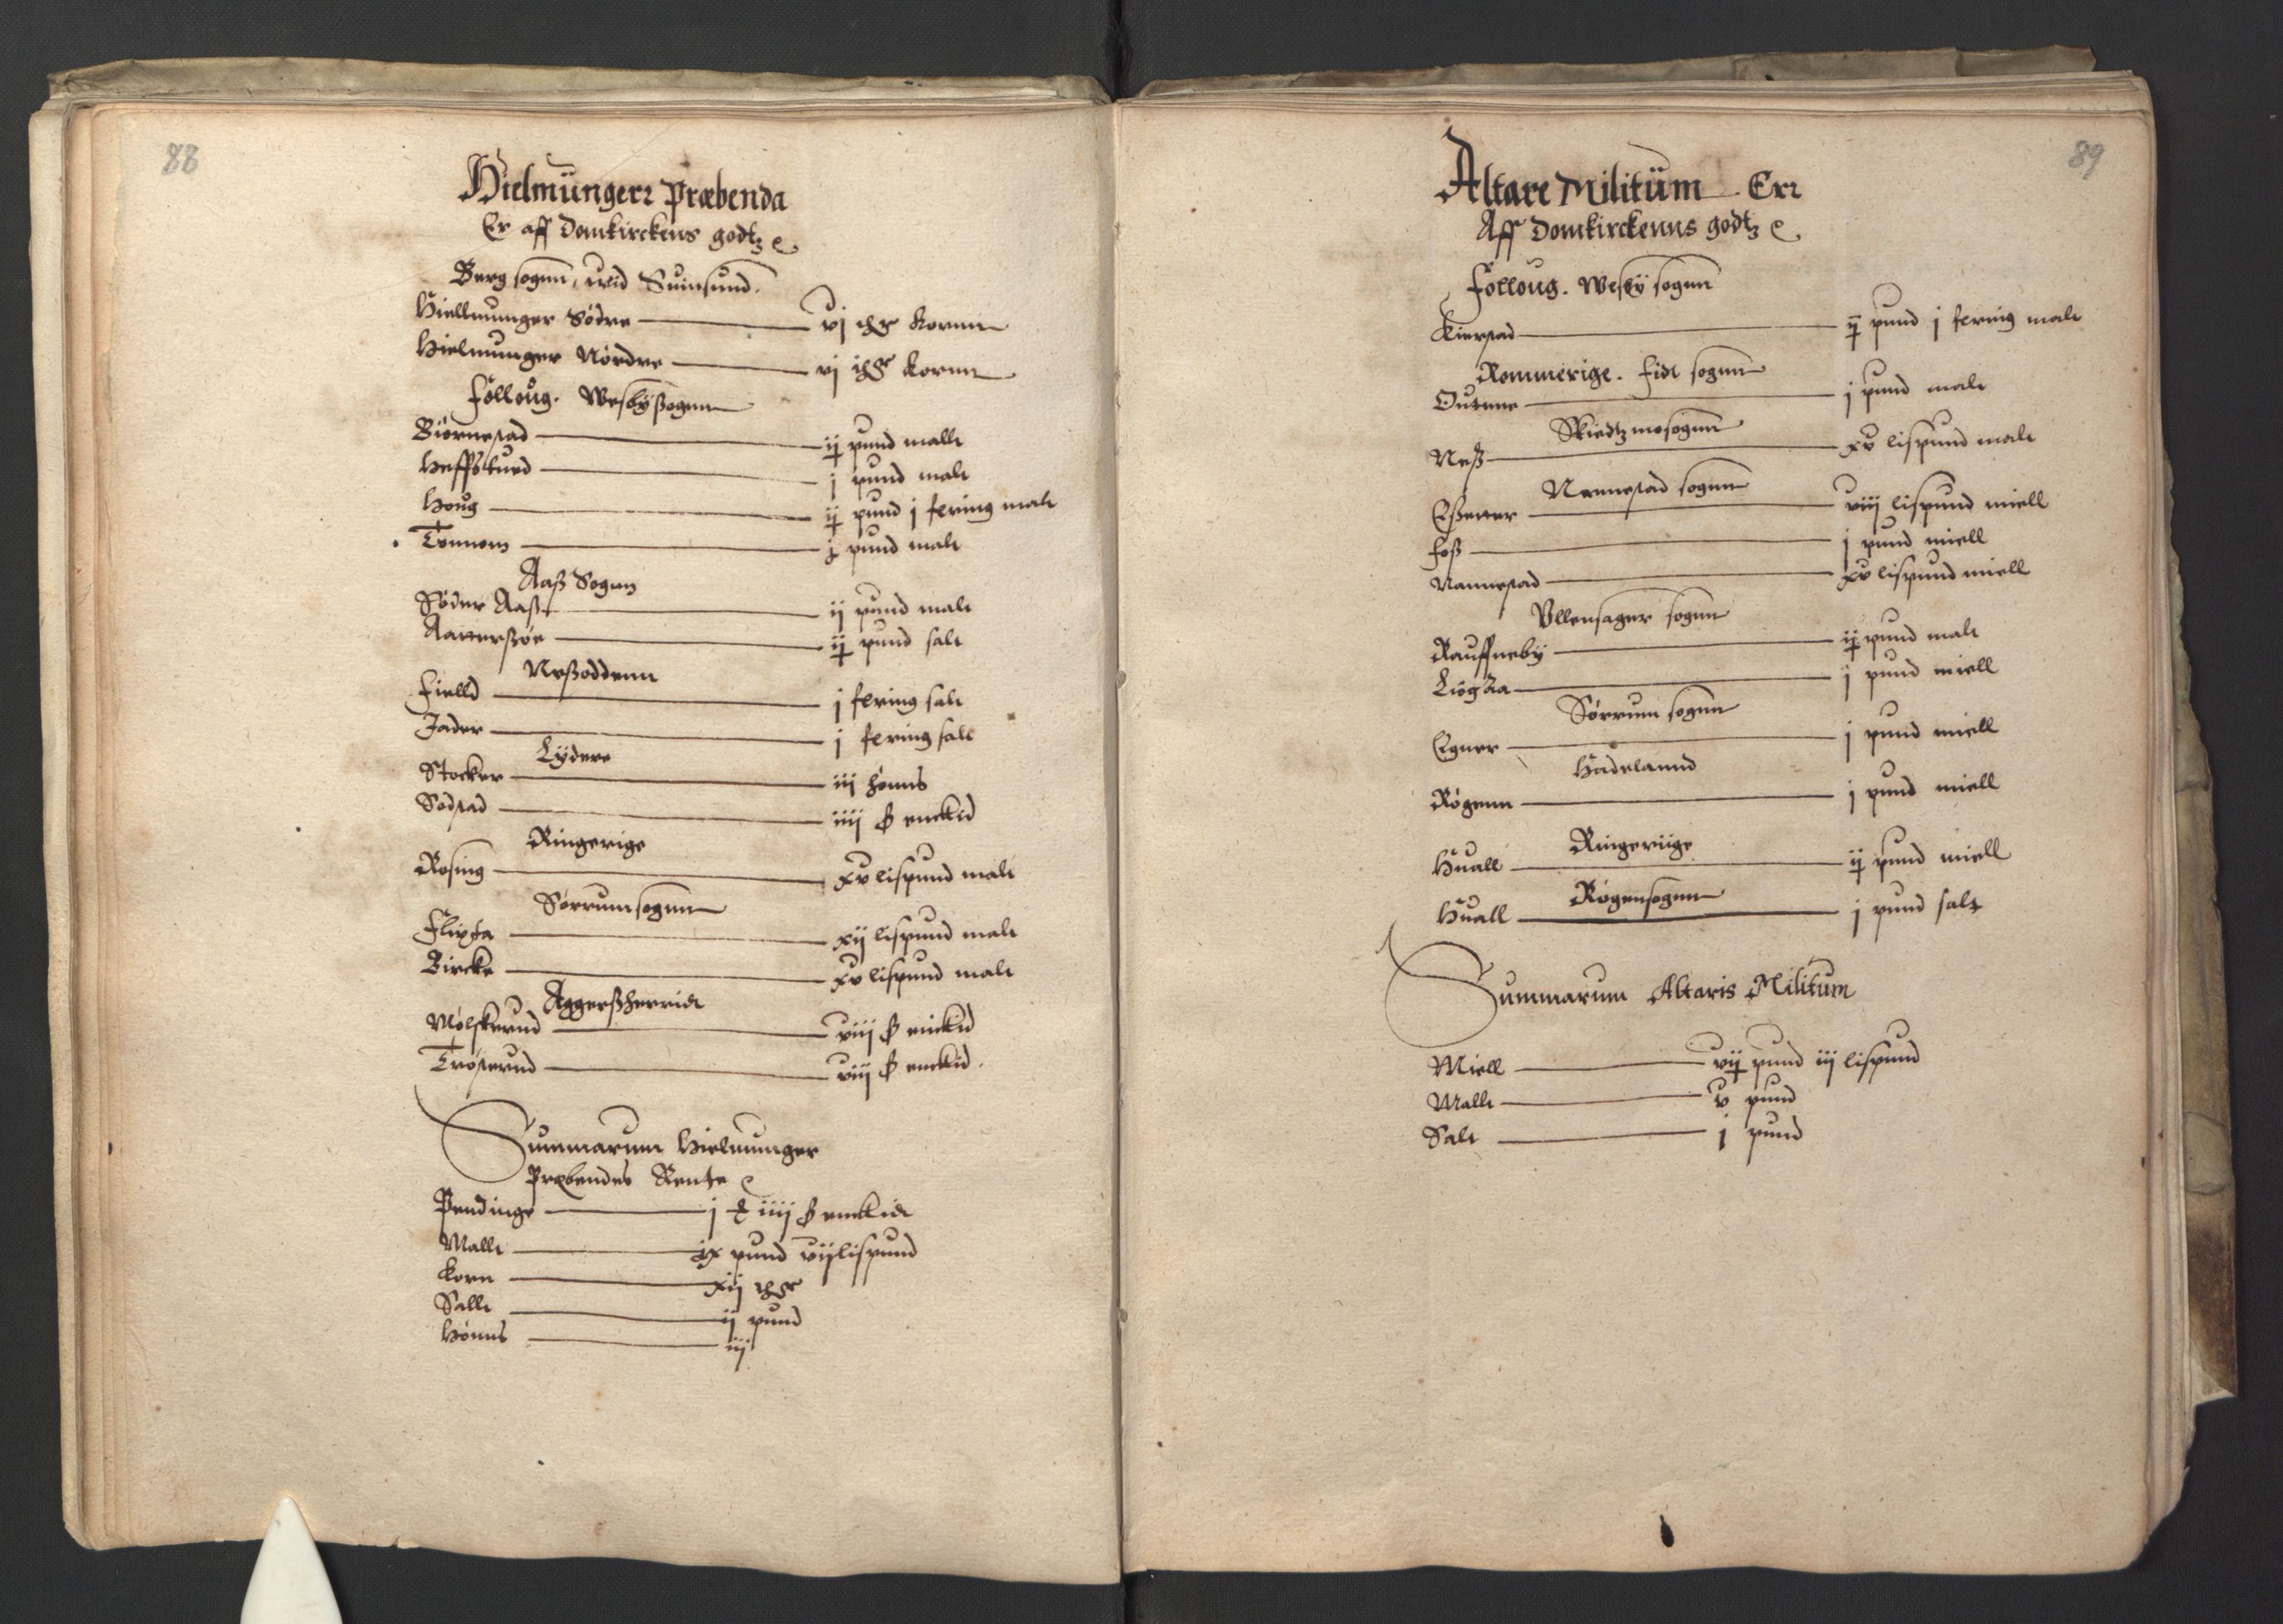 88
Hielmungerr Præbenda
Er aff Domkirckens godtz
Berg sognn, wid Suinsund.
Hiellmunger Sødre — vj Kornn
Hielmunger Nordre — vj Kornn
Folloug. Wesbÿ sognn
Biørnestad — ij pund mallt
Heffskued — j pund malt
Houg — ij pund j fering malt
Tomnom — j pund malt
Aaß Sognn
Søder Aaß — ij pund malt
Aarrerßøe — ij pund salt
Neßoddenn
Fielld — j fering salt
Jader — j fering salt
Lÿdere
Stocker — iij hønns
Sodstad — iiij ß enckid
Ringerige
Rosing — xv lispund malt
Sørrum sognn
Flixta — xij lispund malt
Bircke — xv lispund malt
Aggerßherridt
Mølskerud — viij ß enckid
Trosterud — viij ß enckid.
Summarum Hielmunger
Præbendes Rente
Pendinge — j iiij ß enckidt
Mallt — ix pund vij lispund
Korn — xij
Sallt — ij pund
Hønns — iij
89
Altare Militum Err
Aff Domkirckenns godtz
Folloug. Wesbÿ sognn
Kierstad — ij pund j fering malt
Rommerige. Fidt sognn
Outnne — j pund malt
Skiedtzmosognn
Neß — xv lispund malt
Nannestad sognn
Eßerrer — viij lispund miell
Foß — j pund miell
Nannestad — xv lispund miell
Vllensager sognn
Rauffnebÿ — ij pund malt
Liøgaa — j pund miell
Sørrum sognn
Egner — j pund miell
Hadelannd
Røgenn — j pund miell
Ringeriige
Huall — ij pund miell
Røgensognn
Huall — j pund salt
Summarum Altaris Militum
Miell — vij pund iij lispund
Mallt — v pund
Salt — j pund